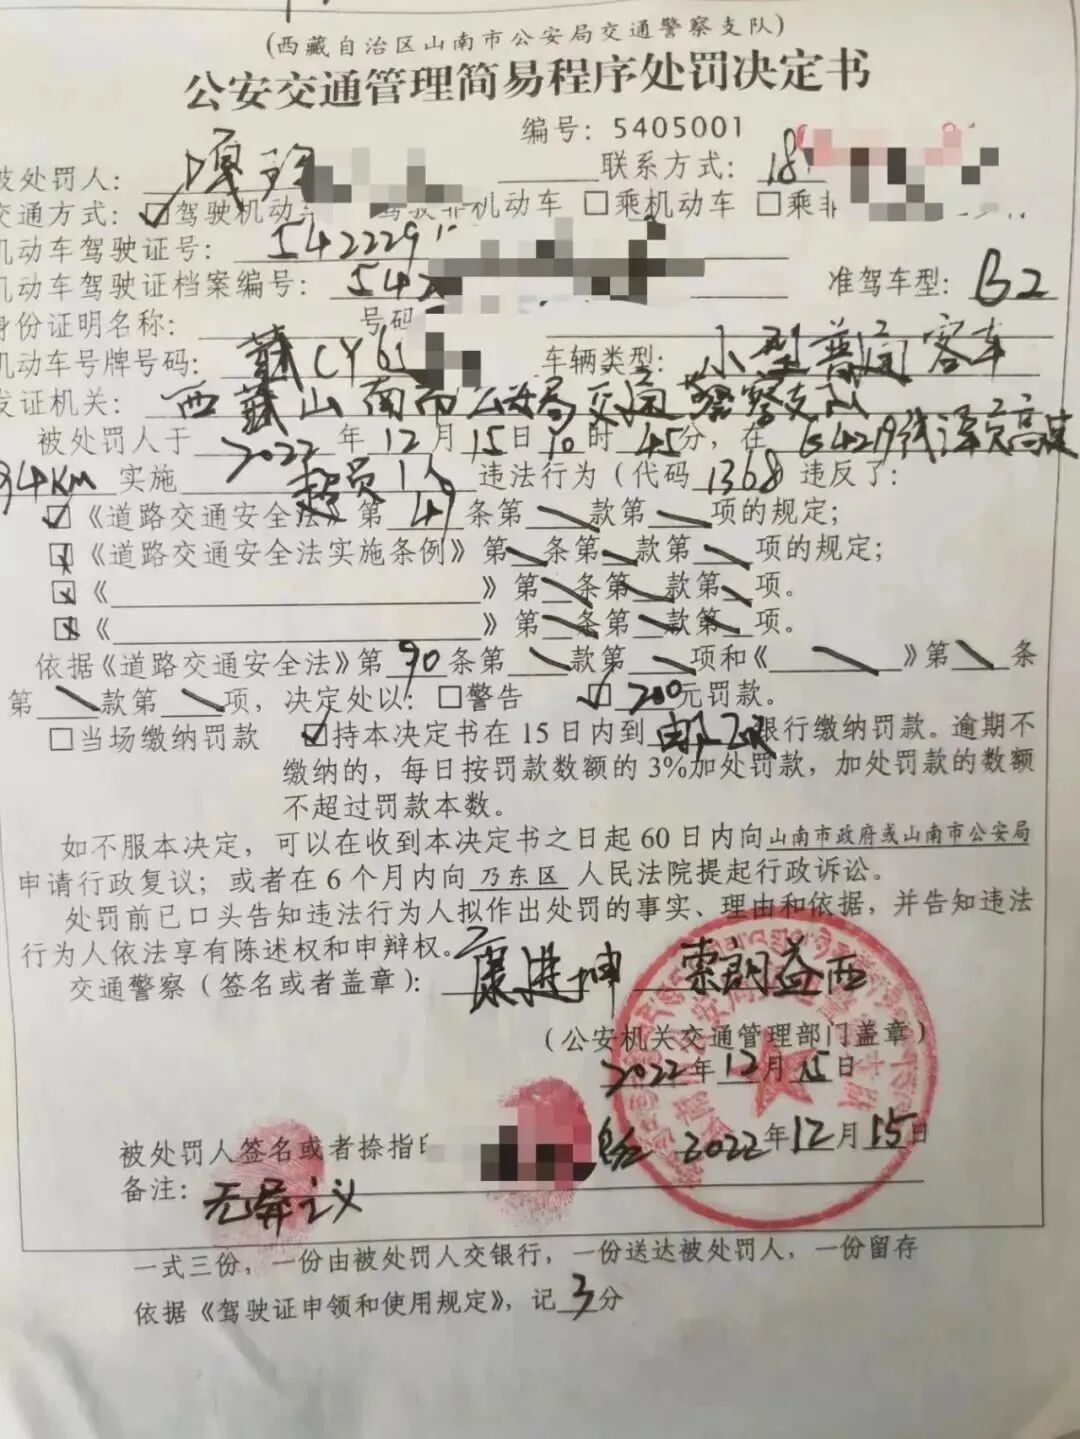 (西藏自治区山南市公安局交通警察支队)
公安交通管理简易程序处罚决定书
编号：5405001
被处罚人： 嘎 联系方式：18
交通方式：☑驾驶机动车 驾驶非机动车 □乘机动车 □乘非
机动车驾驶证号：542229
机动车驾驶证档案编号：542 准驾车型：B2
身份证明名称： 号码
机动车号牌号码：藏CY6 车辆类型：小型普通客车
发证机关：西藏山南市公安局交通警察支队
被处罚人于2022年12月15日10时45分，在G4219线泽贡高速
94KM实施 超员1人 违法行为（代码1368违反了：
☑《道路交通安全法》第49条第\款第\项的规定；
☒《道路交通安全法实施条例》第\条第\款第\项的规定；
☒《 》第\条第\款第\项。
☒《 》第\条第\款第\项。
依据《道路交通安全法》第90条第\款第\项和《\》第\条
第\款第\项，决定处以：□警告 ☑200元罚款。
□当场缴纳罚款 ☑持本决定书在15日内到邮政银行缴纳罚款。逾期不
缴纳的，每日按罚款数额的3%加处罚款，加处罚款的数额
不超过罚款本数。
如不服本决定，可以在收到本决定书之日起60日内向山南市政府或山南市公安局
申请行政复议；或者在6个月内向 乃东区 人民法院提起行政诉讼。
处罚前已口头告知违法行为人拟作出处罚的事实、理由和依据，并告知违法
行为人依法享有陈述权和申辩权。
交通警察（签名或者盖章）：康进坤 索朗益西
（公安机关交通管理部门盖章）
2022年12月15日
被处罚人签名或者捺指印 2022年12月15日
备注：无异议
一式三份，一份由被处罚人交银行，一份送达被处罚人，一份留存
依据《驾驶证申领和使用规定》，记3分